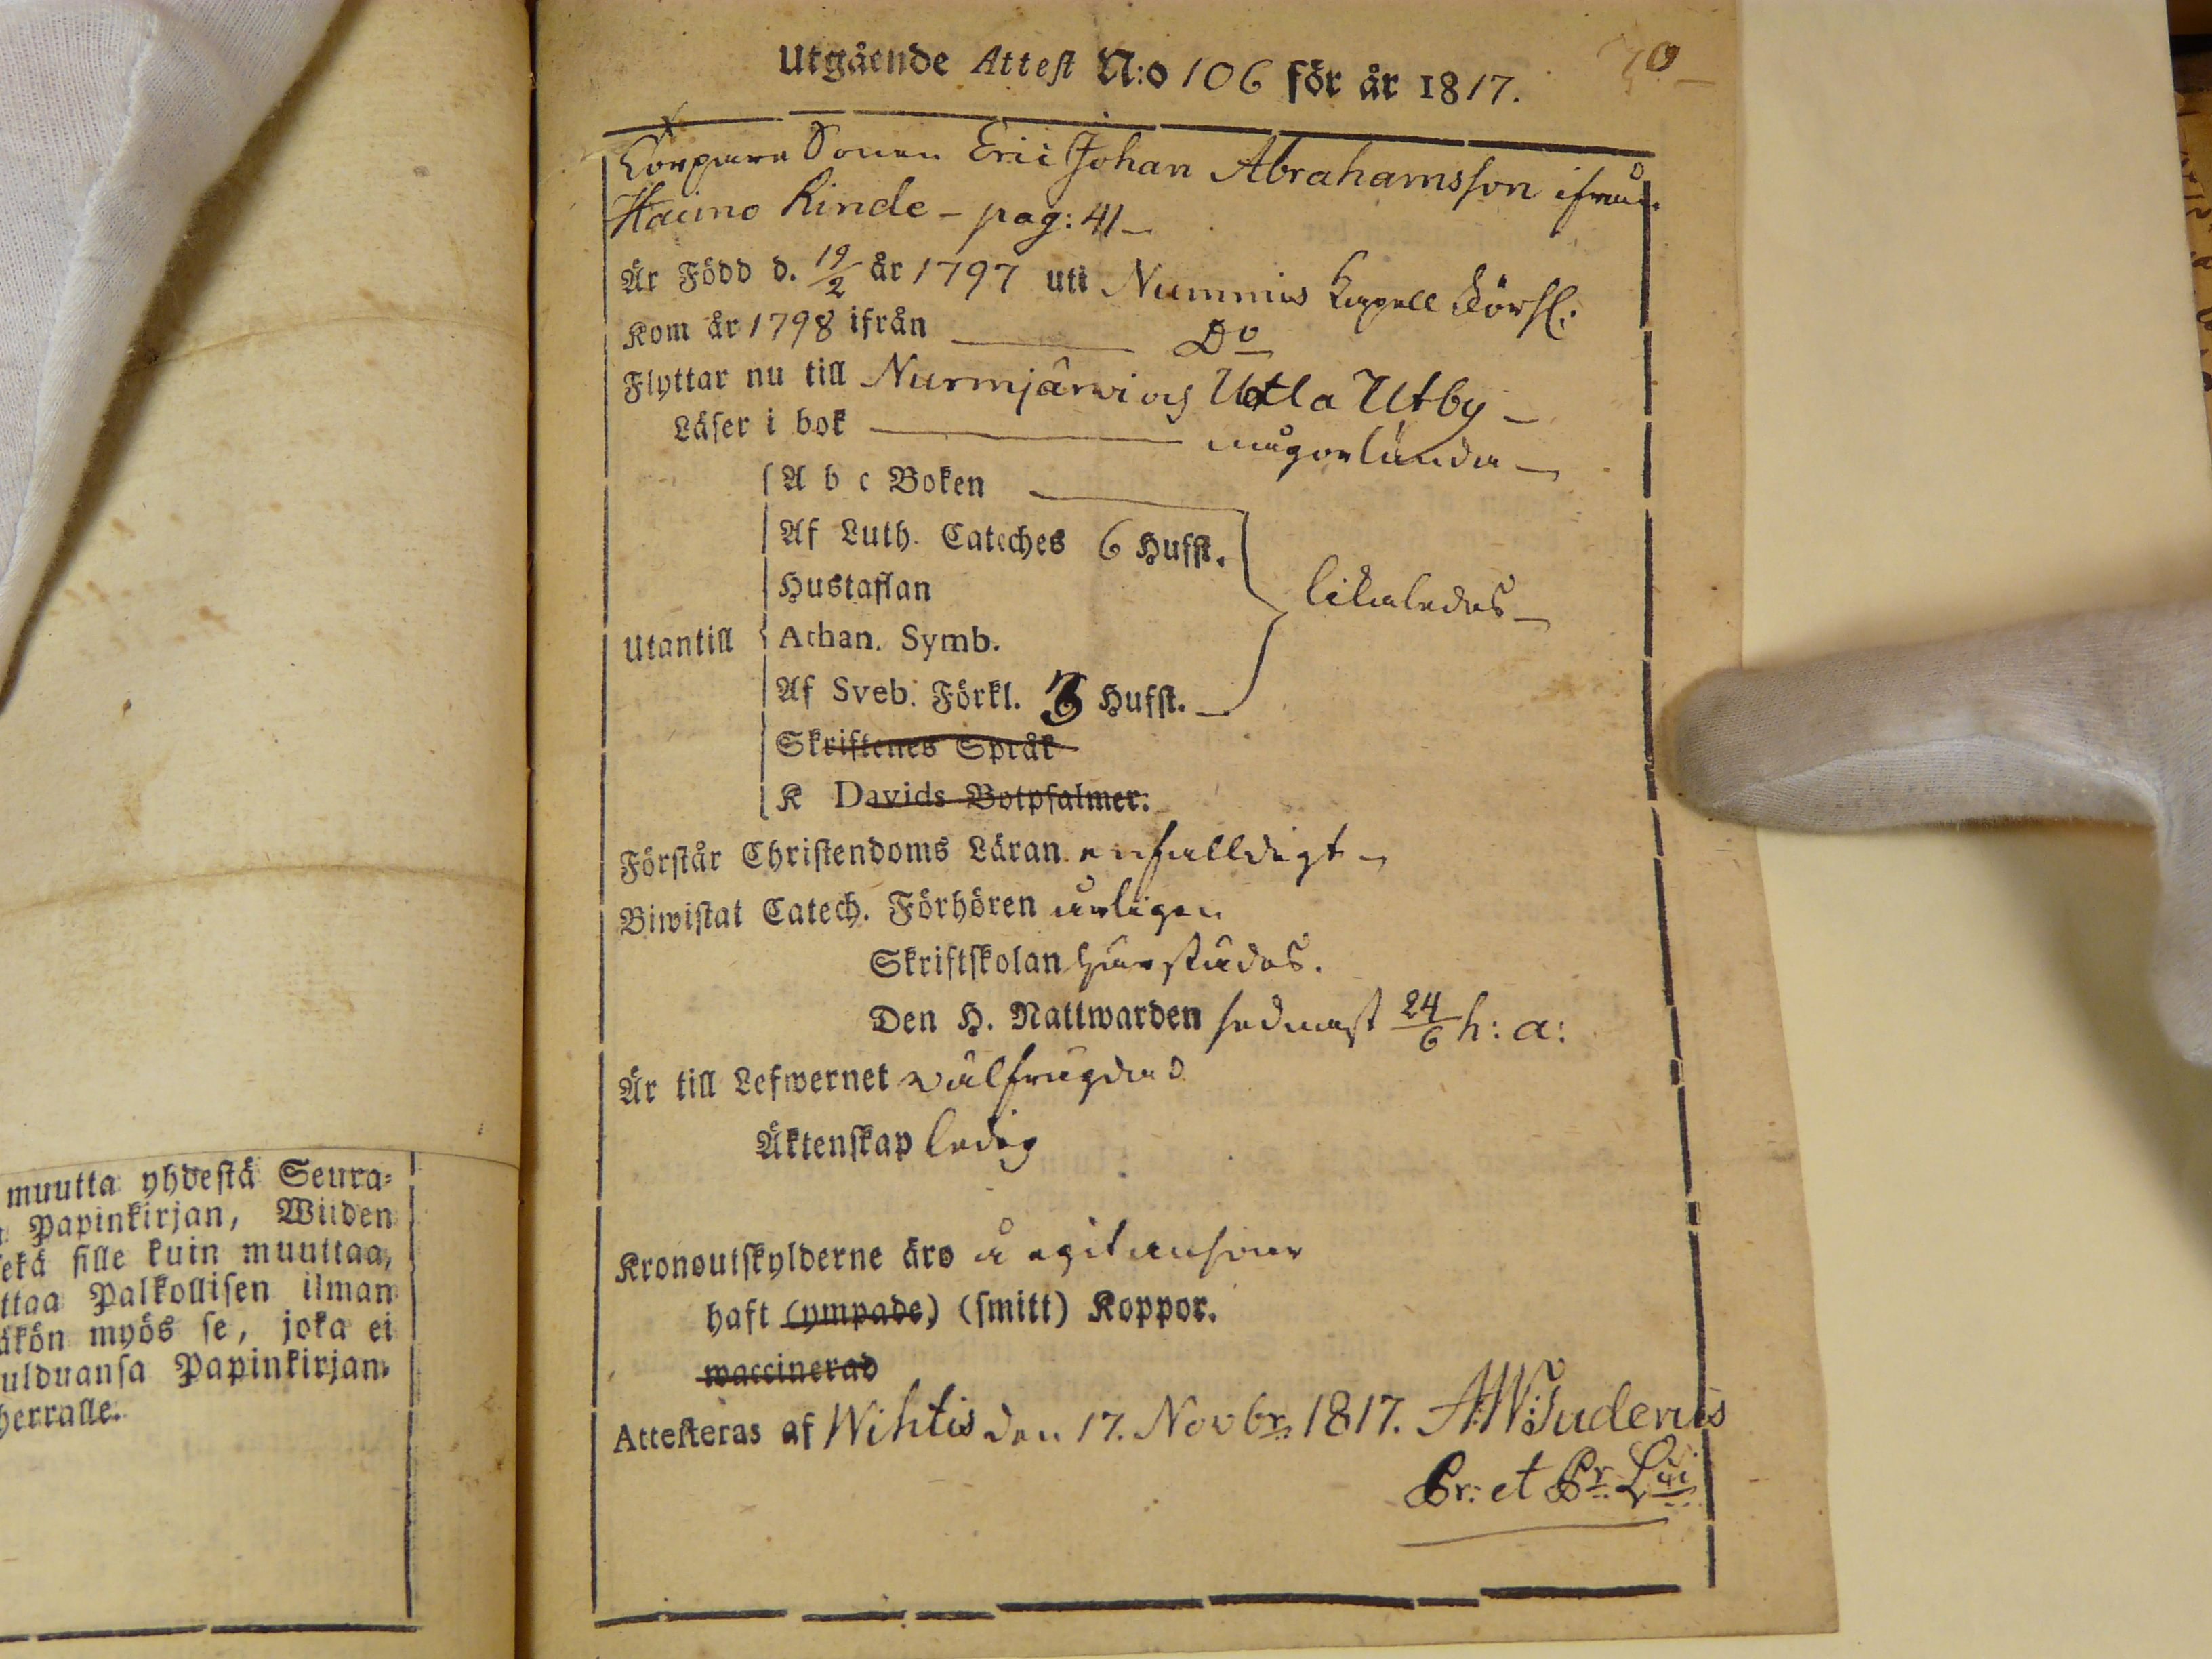 muutta yhdestä Seura-
Papinkirjan, Wiiden
ekä sille kuin muuttaa,
ttaa Palkollisen ilman
äkön myös se, joka ei
ulduansa Papinkirjan-
herralle.
70
Utgående Attest N:o 106 för år 1817.
Torpare Sonen Eric Johan Abrahamsson ifrån
Haimo Rinde - pag: 41
Är Född d. 19/2 år 1797 uti Nummis Capell
Kom år 1798 ifrån Do
Flyttar nu till Nurmjärvi och Utby
Läser i bok någorlunda
A b c Boken
Af Luth. Cateches 6 Hufst.
Hustaflan
likaledes
Utantill
Athan. Symb.
Af Sveb. Förkl. 3 Hufst.
Skriftenes Språk
K Davids Botpsalmer.
Förstår Christendoms Läran enfalldigt
Biwistat Catech. Förhören årligen
Skriftskolan härstädes.
Den H. Nattwarden sednast 24/6 h: a:
Är till Lefwernet välfrägdad
Äktenskap ledig
Kronoutskylderne äro
haft (ympade) (smitt) Koppor.
waccinerad
Attesteras af Wihtis den 17. Novbr. 1817.
Pr: et Pr.